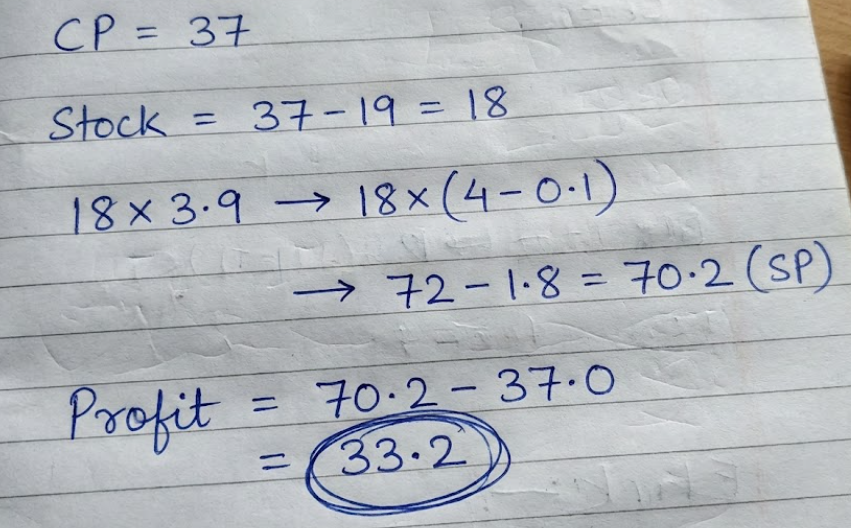 CP = 37
Stock = 37-19 = 18
18 × 3.9 → 18×(4-0.1)
→ 72-1.8 = 70.2 (SP)
Profit = 70.2 - 37.0
= 33.2